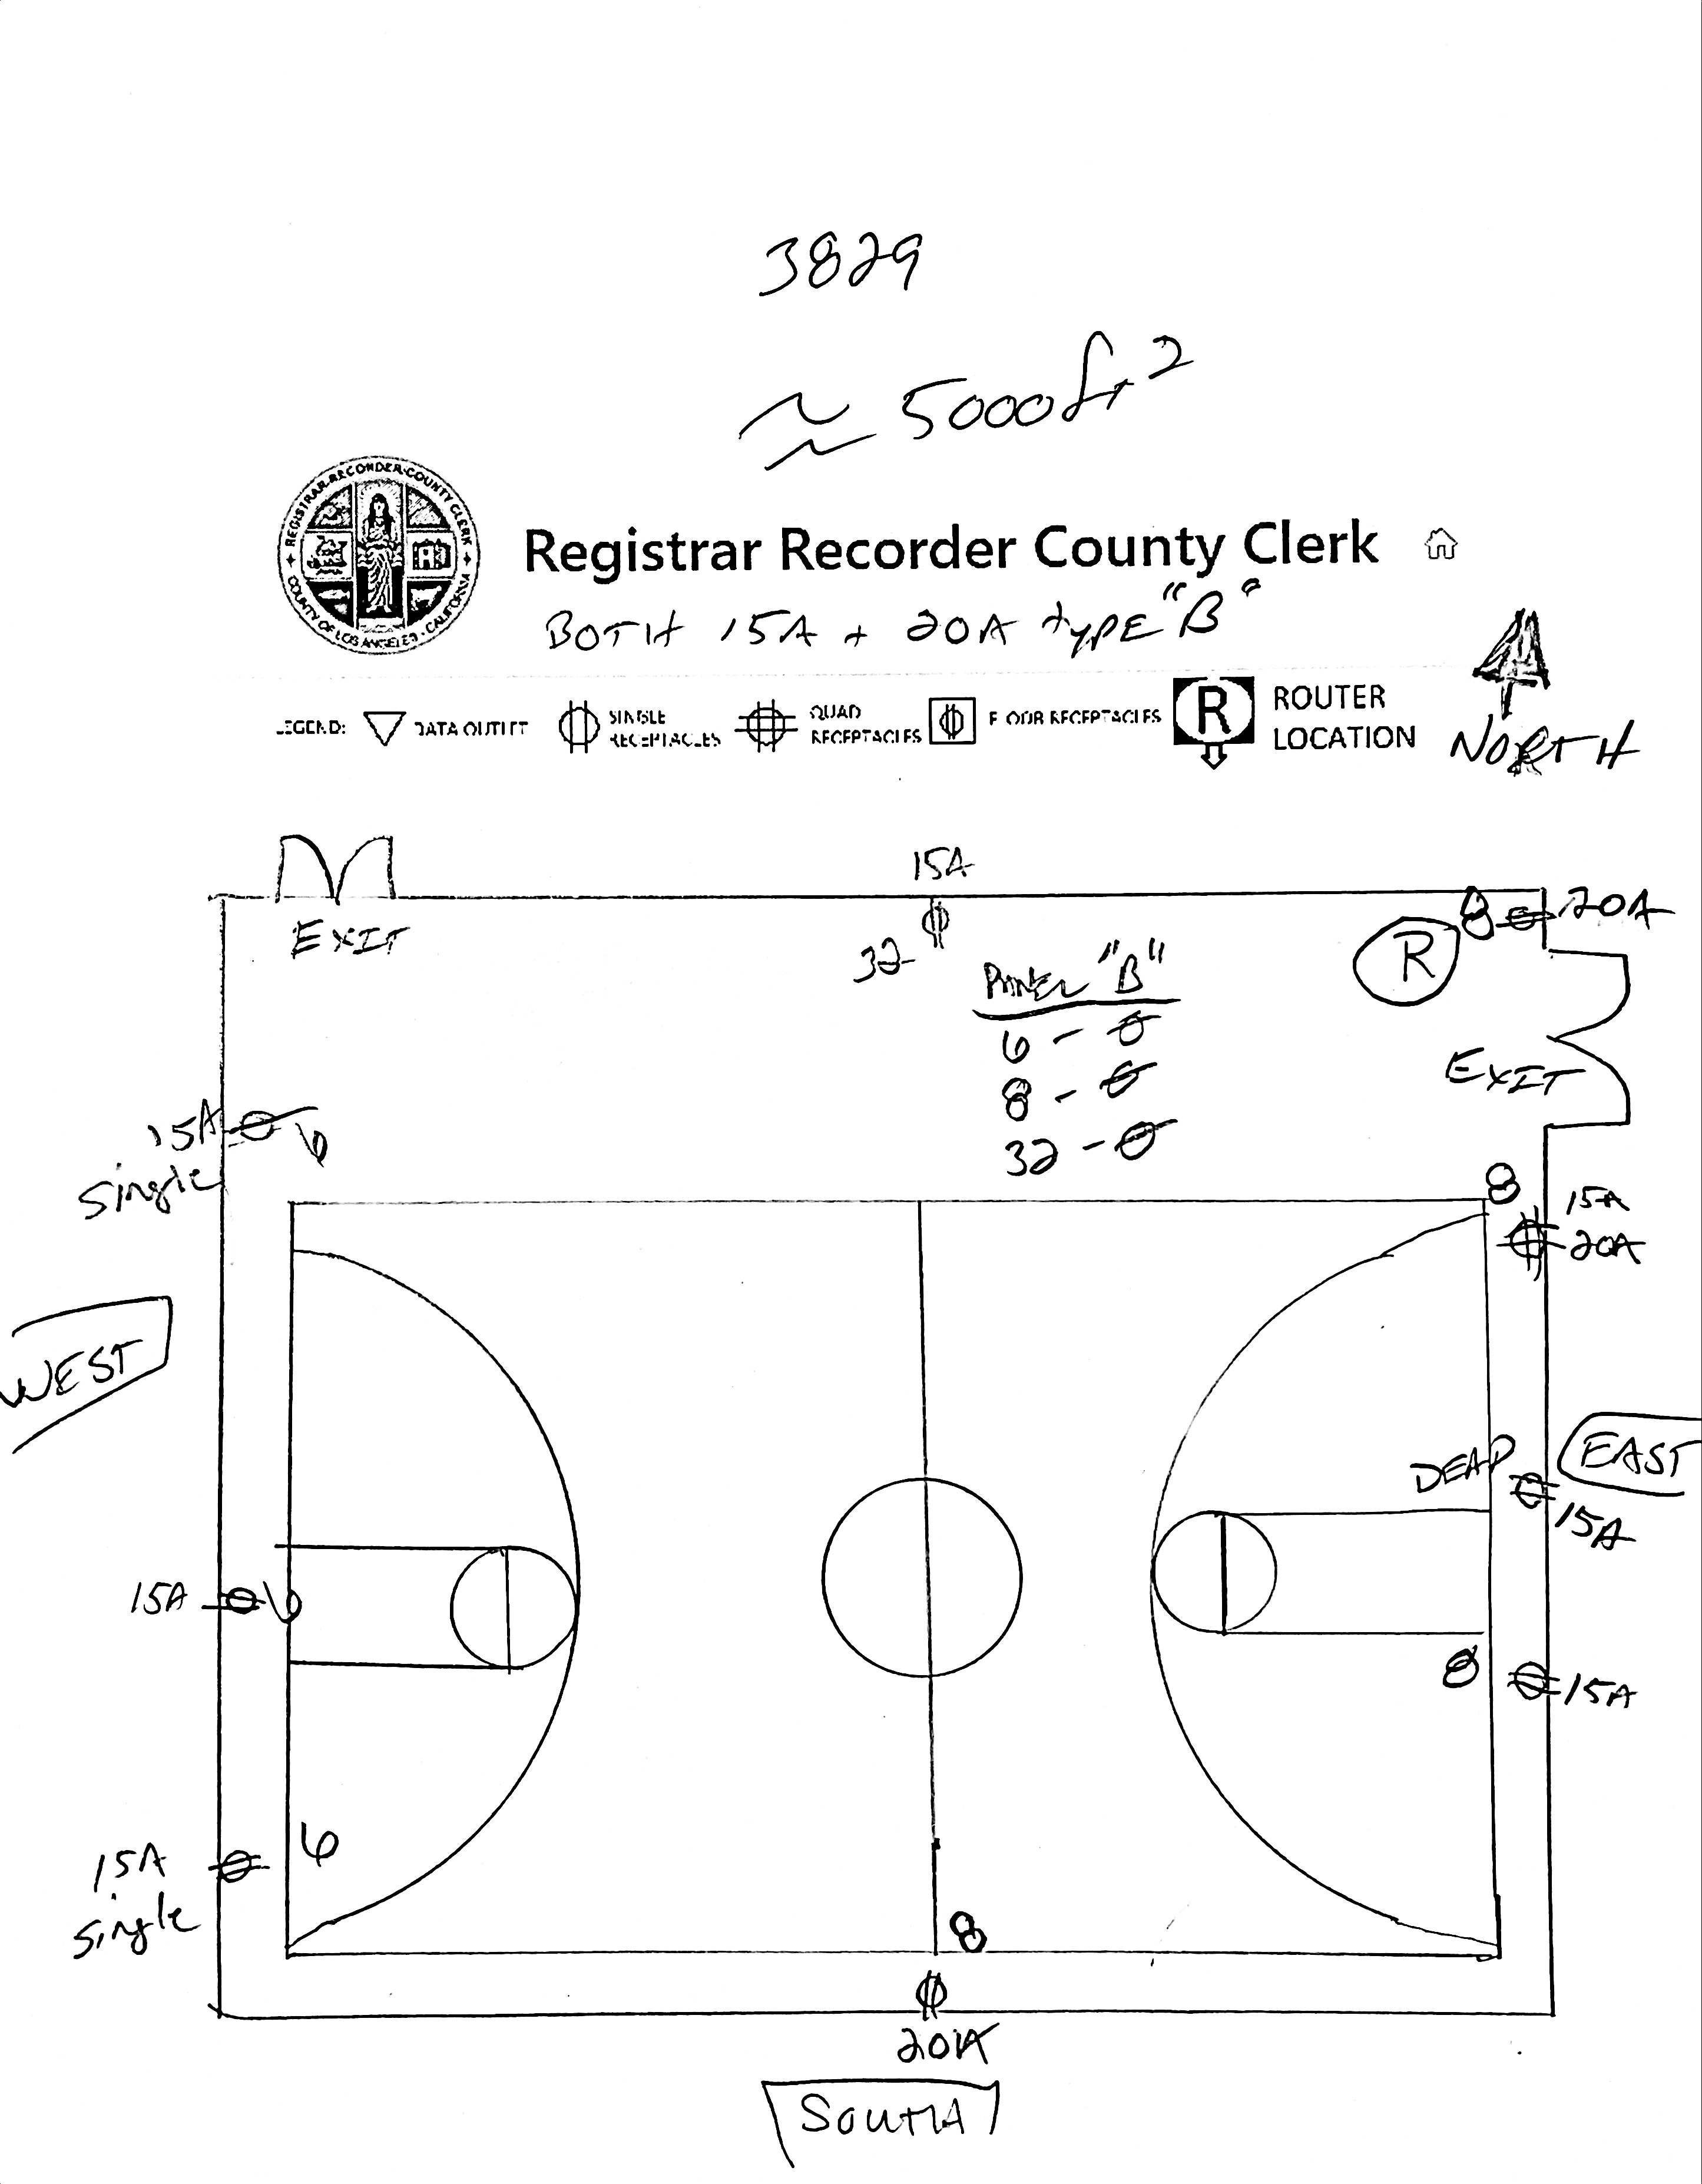 3829
≈ 5000ft²
REGISTRAR-RECORDER·COUNTY CLERK
COUNTY OF LOS ANGELES · CALIFORNIA
Registrar Recorder County Clerk
BOTH 15A + 20A tyPE "B"
LEGEND:
DATA OUTLET
SINGLE
RECEPTACLES
QUAD
RECEPTACLES
FLOOR RECEPTACLES
R
ROUTER
LOCATION
NORTH
15A
EXIT
32
8
20A
R
PANEL "B"
6 -
8 -
32 -
EXIT
15A
single
6
8
15A
20A
WEST
DEAD
EAST
15A
15A
6
8
15A
15A
single
6
8
20A
SOUTH